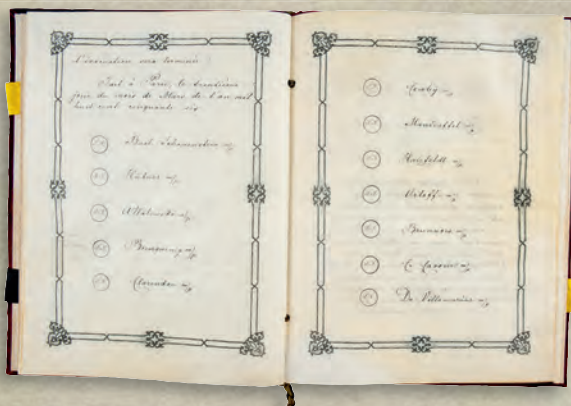 l'évacuation sera terminée.
Fait à Paris, le trentième
jour du mois de Mars de l'an mil
huit cent cinquante six
Buol Schauenstein
Hübner
A Walewski
Bourqueney
Clarendon
Cowley
Manteuffel
Hatzfeldt
Orloff
Brunnow
C. Cavour
De Villamarina